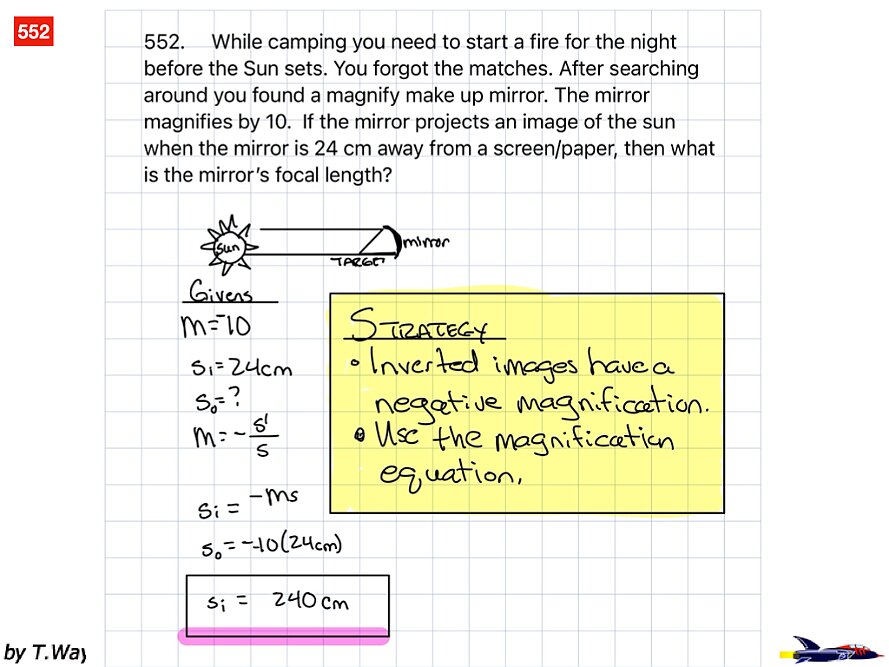 552
552. While camping you need to start a fire for the night
before the Sun sets. You forgot the matches. After searching
around you found a magnify make up mirror. The mirror
magnifies by 10. If the mirror projects an image of the sun
when the mirror is 24 cm away from a screen/paper, then what
is the mirror's focal length?
Sun
mirror
TARGET
Givens
m=-10
si=24cm
so=?
m=-s'/s
si = -ms
so=--10(24cm)
si = 240 cm
STRATEGY
• Inverted images have a
negative magnification.
• Use the magnification
equation,
by T.Way